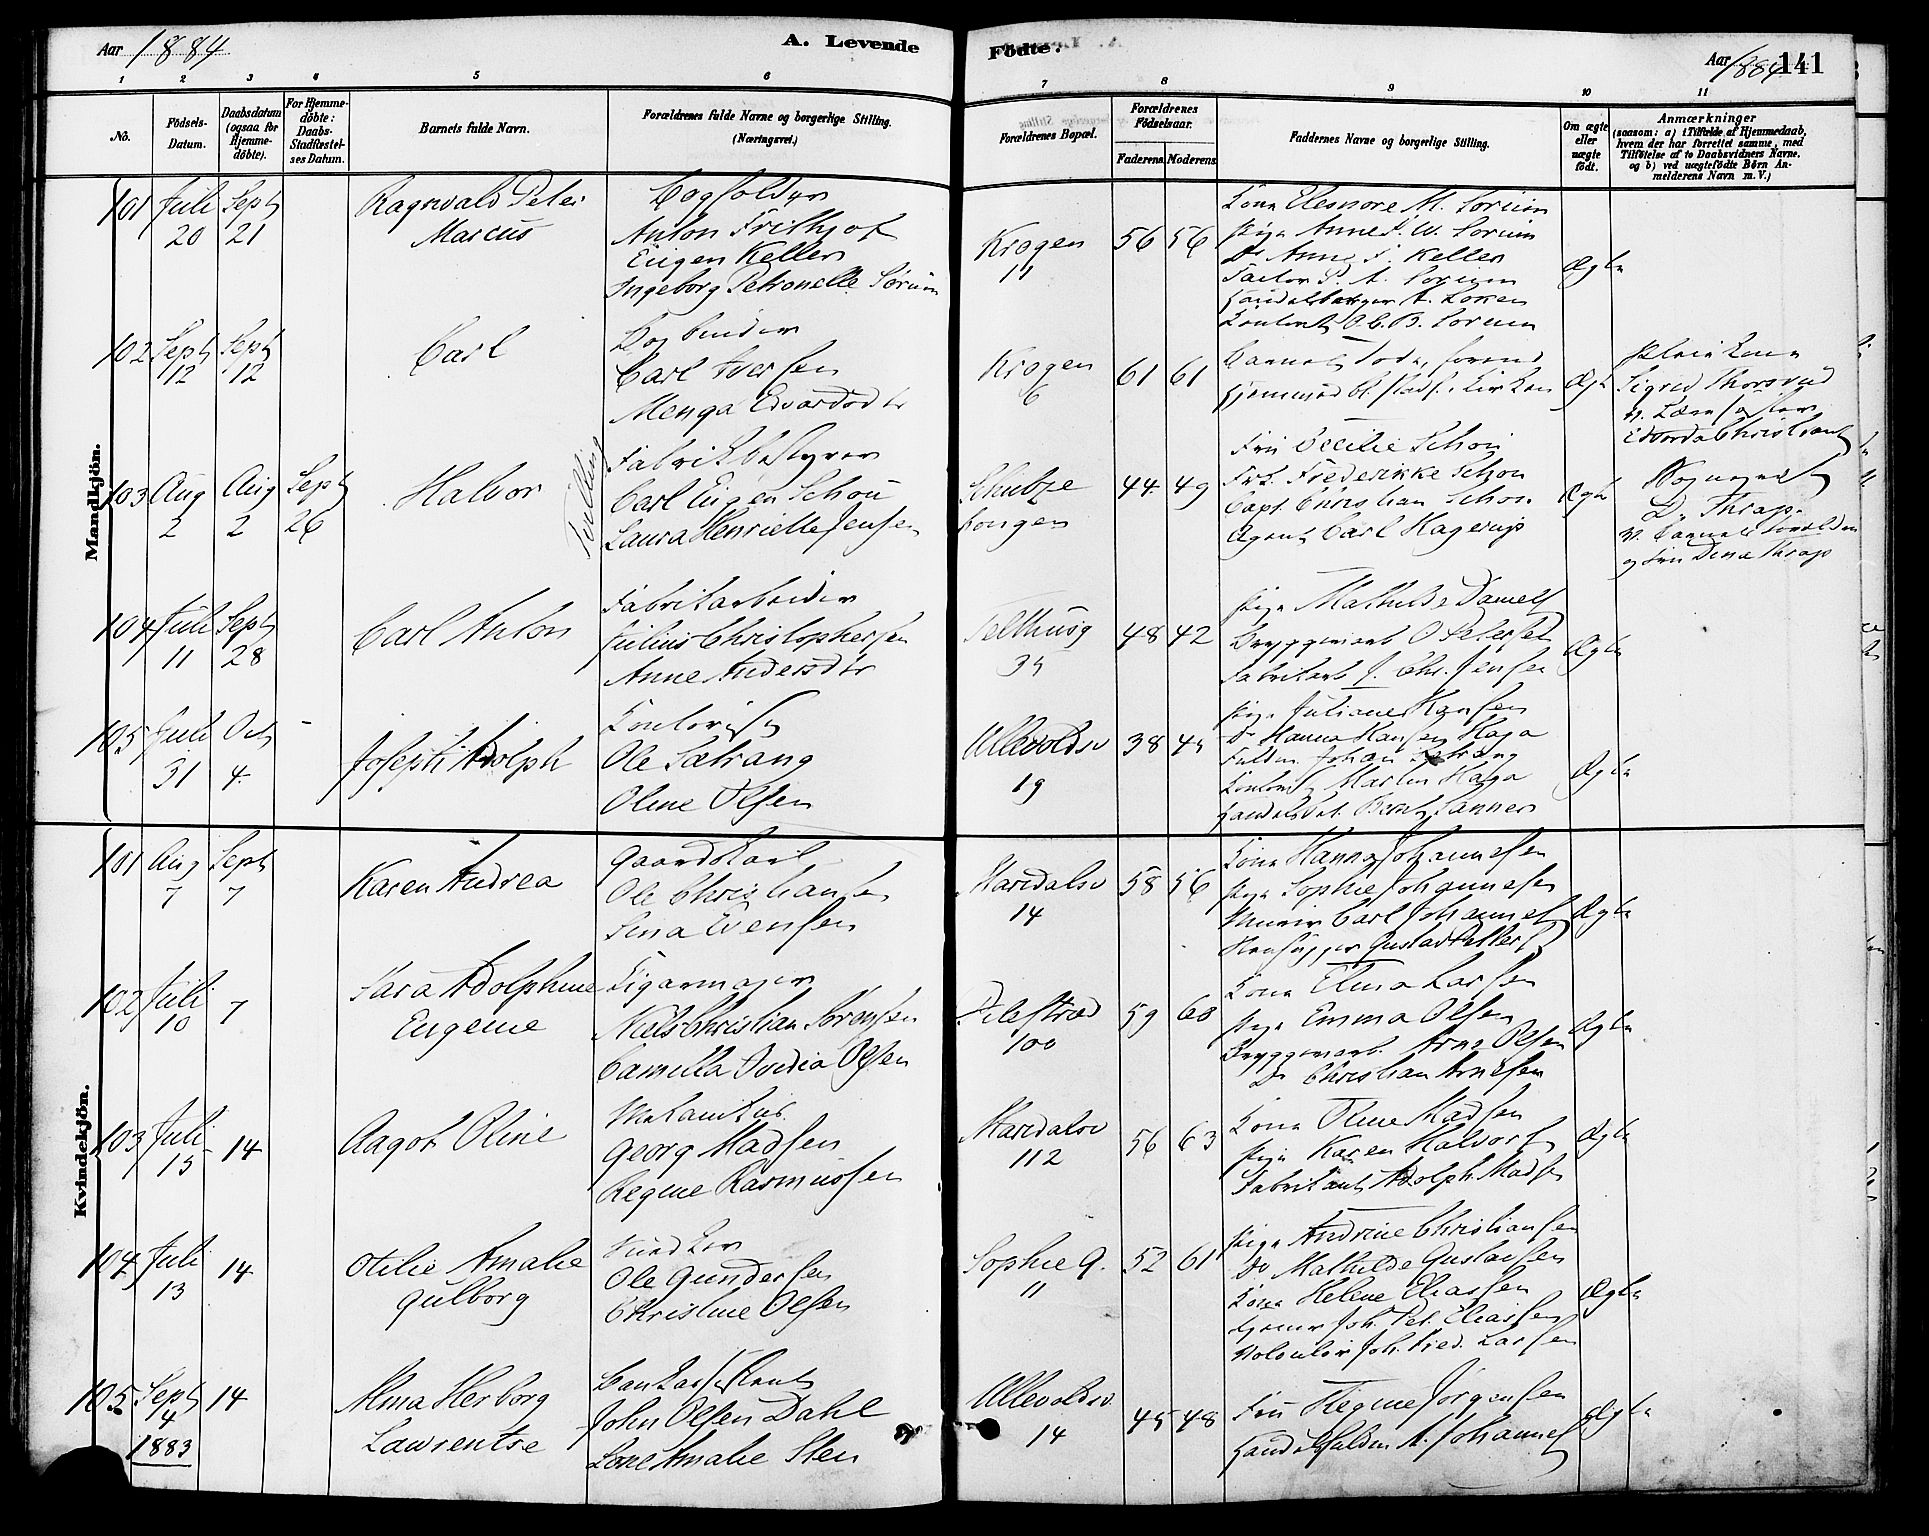 Aar 1884
A. Levende
Födte.
Aar 1884
141
1 2 3 4 5 6 7 8 9 10 11
No.
Födsels-
Datum.
Daabsdatum
(ogsaa for
Hjemme-
döbte).
For Hjemme-
döbte:
Daabs-
Stadfæstel-
ses Datum.
Barnets fulde Navn.
Forældrenes fulde Navne og borgerlige Stilling.
(Næringsvei.)
Forældrenes Bopæl.
Forældrenes
Födselsaar.
Faderens. Moderens.
Faddernes Navne og borgerlige Stilling.
Om ægte
eller
uægte
födt.
Anmærkninger
(saasom: a) i Tilfælde af Hjemmedaab,
hvem der har forrettet samme, med
Tilföielse af to Daabsvidners Navne,
og b) ved uægtefödte Börn An-
melderens Navn m. V.)
Mandkjön.
101 Juli 20
Sept 21
Ragnvald Peter
Marcus
Anton Frithjof
Eugen Keller
Ingeborg Petronelle Sörum
Krogen
11
56 56
Kone Eleonore M. Sorum
Pige Anne P. W. Sorum
Do Anne F. Keller
Factor P. A. Sorum
A. Loken
O. C. B. Sorum
Ægte
102 Sept 12
Sept 12
Carl
Bogbinder
Carl Iversen
Menga Edvardsdtr
Krogen
6
61 61
Ægt
Sigrid Thorsrud
103 Aug 2
Aug 2
Sept 26
Halvor
Tvilling
Fabrikbestyrer
Carl Eugen Schou
Laura Henriette Jensen
Schultze
44 49
Fru Cecilie Schou
Frk. Frederikke Schou
Capt. Christian Schou
Agent Carl Hagerup
Ægte
Sogneprest
D. Thrap
og Fru Dina Thrap
104 Juli 11
Sept 28
Carl Anton
Fabrikarbeider
Julius Christophersen
Anne Andersdtr
Telthusg
35
48 42
Pige Mathilde Daniels
Bryggeriarb O Petersen
Fabrikarb J. Chr. Jensen
Ægte
105 Juli 31
Oct 4
Joseph Adolph
Kontorist
Ole Sætrang
Oline Olsen
Ullevoldsv
19
38 45
Pige Juliane Hansen
Do Hanna Hansen Haga
Fuldm. Johan Sætrang
Martin Haga
Bernt Sanner
Ægte
Kvindekjön.
101 Aug 7
Sept 7
Karen Andrea
Gaardskarl
Ole Christiansen
Sina Evensen
Maridalsv
14
58 56
Kone Hanna Johannesen
Pige Sophie Johannesen
Murer Carl Johannes
Stenhugger Gustav Petters
Ægte
102 Juli 10
7
Sara Adolphine
Eugenie
Sigarmager
Niels Christian Sörensen
Camilla Ovidia Olsen
Pilestræd
100
59 60
Kone Elina Larsen
Pige Emma Olsen
Bryggeriarb. Arne Olsen
Do Christian Arnesen
Ægte
103 Juli 15
14
Aagot Oline
Mekanikus
Georg Madsen
Regine Rasmussen
Maridalsv
112
56 63
Kone Oline Madsen
Pige Karen Halvors
Fabrikant Adolph Madsen
Ægte
104 Juli 13
14
Otilie Amalie
Gulborg
Snedker
Ole Gundersen
Christine Olsen
Sophie G.
11
52 61
Pige Andrine Christiansen
Do Mathilde Gustavsen
Kone Helene Eliassen
Joh. Pet. Eliassen
Joh. Fred. Larsen
Ægte
105 Sept 4
1883
14
Alma Herborg
Lawrentse
John Olsen Dahl
Lone Amalie Sten
Ullevoldsv
14
45 48
Fru Regine Jörgensen
A. Johannes
Ægte